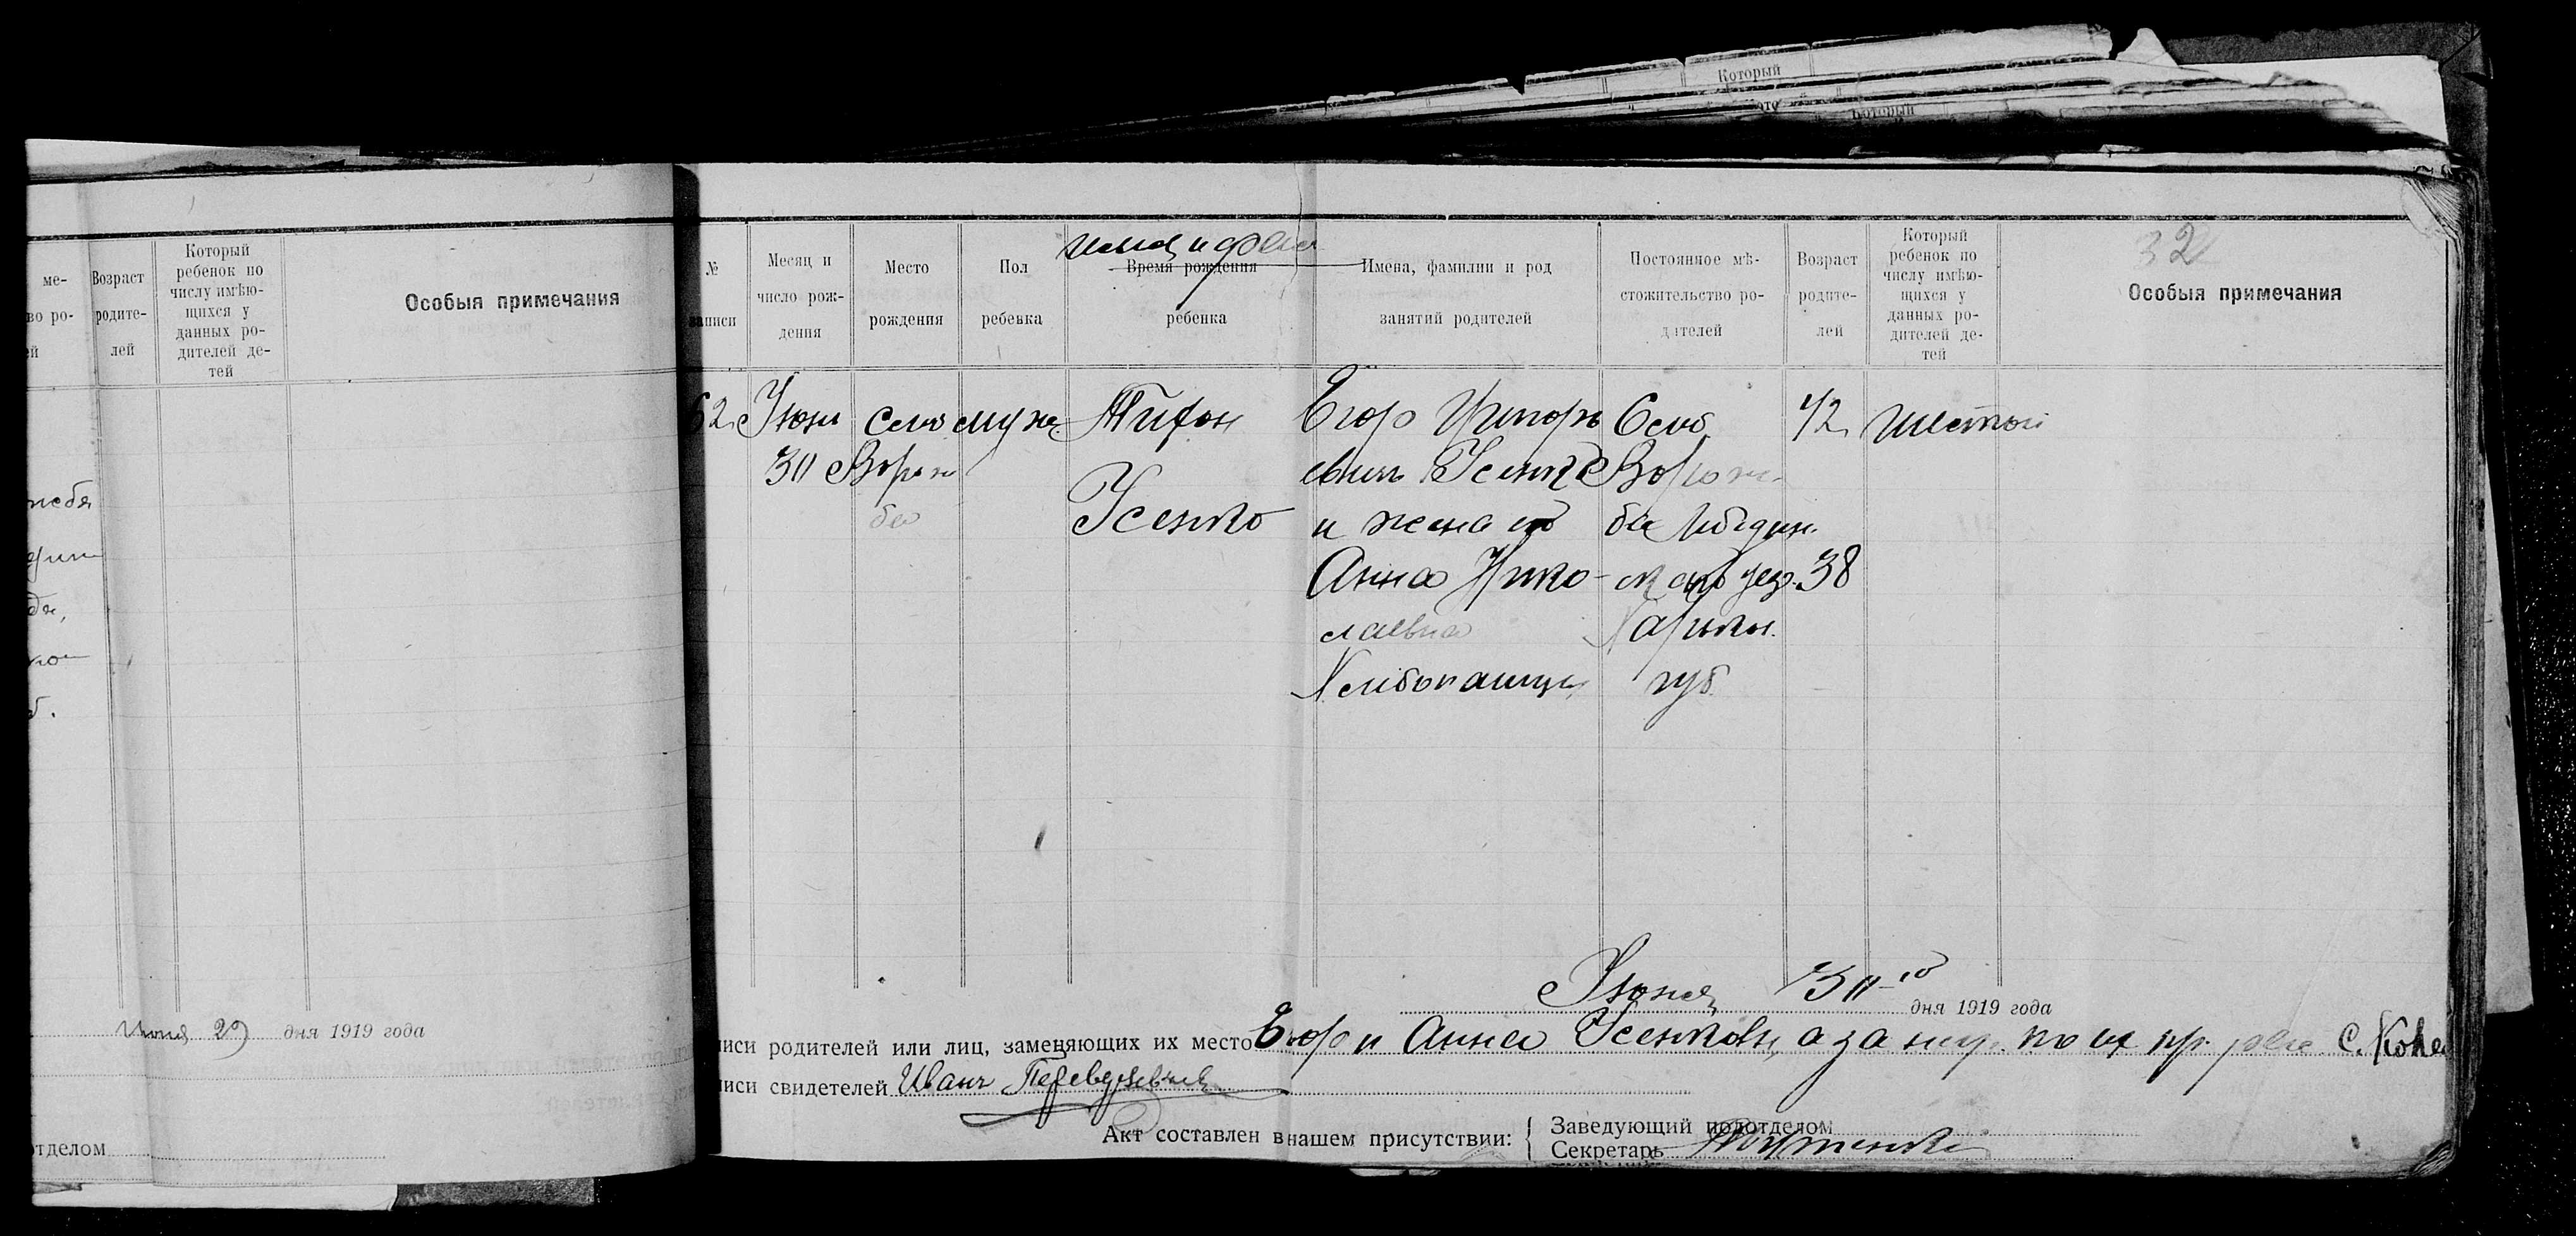 Который
Который
32
ме-
во ро-
ей
Возраст
родите-
лей
Который
ребенок по
числу имѣю-
щихся у
данных ро-
дителей де-
тей
Особыя примечания
июня 29 дня 1919 года
отделом
№
записи
Месяц и
число рож-
дения
Место
рождения
Пол
ребенка
имя и фам
Время рождения
ребенка
Имена, фамилии и род
занятий родителей
Постоянное мѣ-
стожительство ро-
дителей
Возраст
родите-
лей
Который
ребенок по
числу имѣю-
щихся у
данных ро-
дителей де-
тей
Особыя примечания
62
Июня
30
село
Ворож
ба
муж.
Тифон
Усенко
Егор Григорь
евич Усенко
и жена его
Анна Нико-
лаевна
Хлибопашцы
Село
Ворож-
ба Лебедин.
ского уез.
Харьков.
губ.
42
38
шестой
Июня 30-го дня 1919 года
писи родителей или лиц, заменяющих их место Егор и Анна Усенковы, а за них по их пр. рас.
писи свидетелей Иван
Акт составлен в нашем присутствии:
Заведующий подотделом
Секретарь